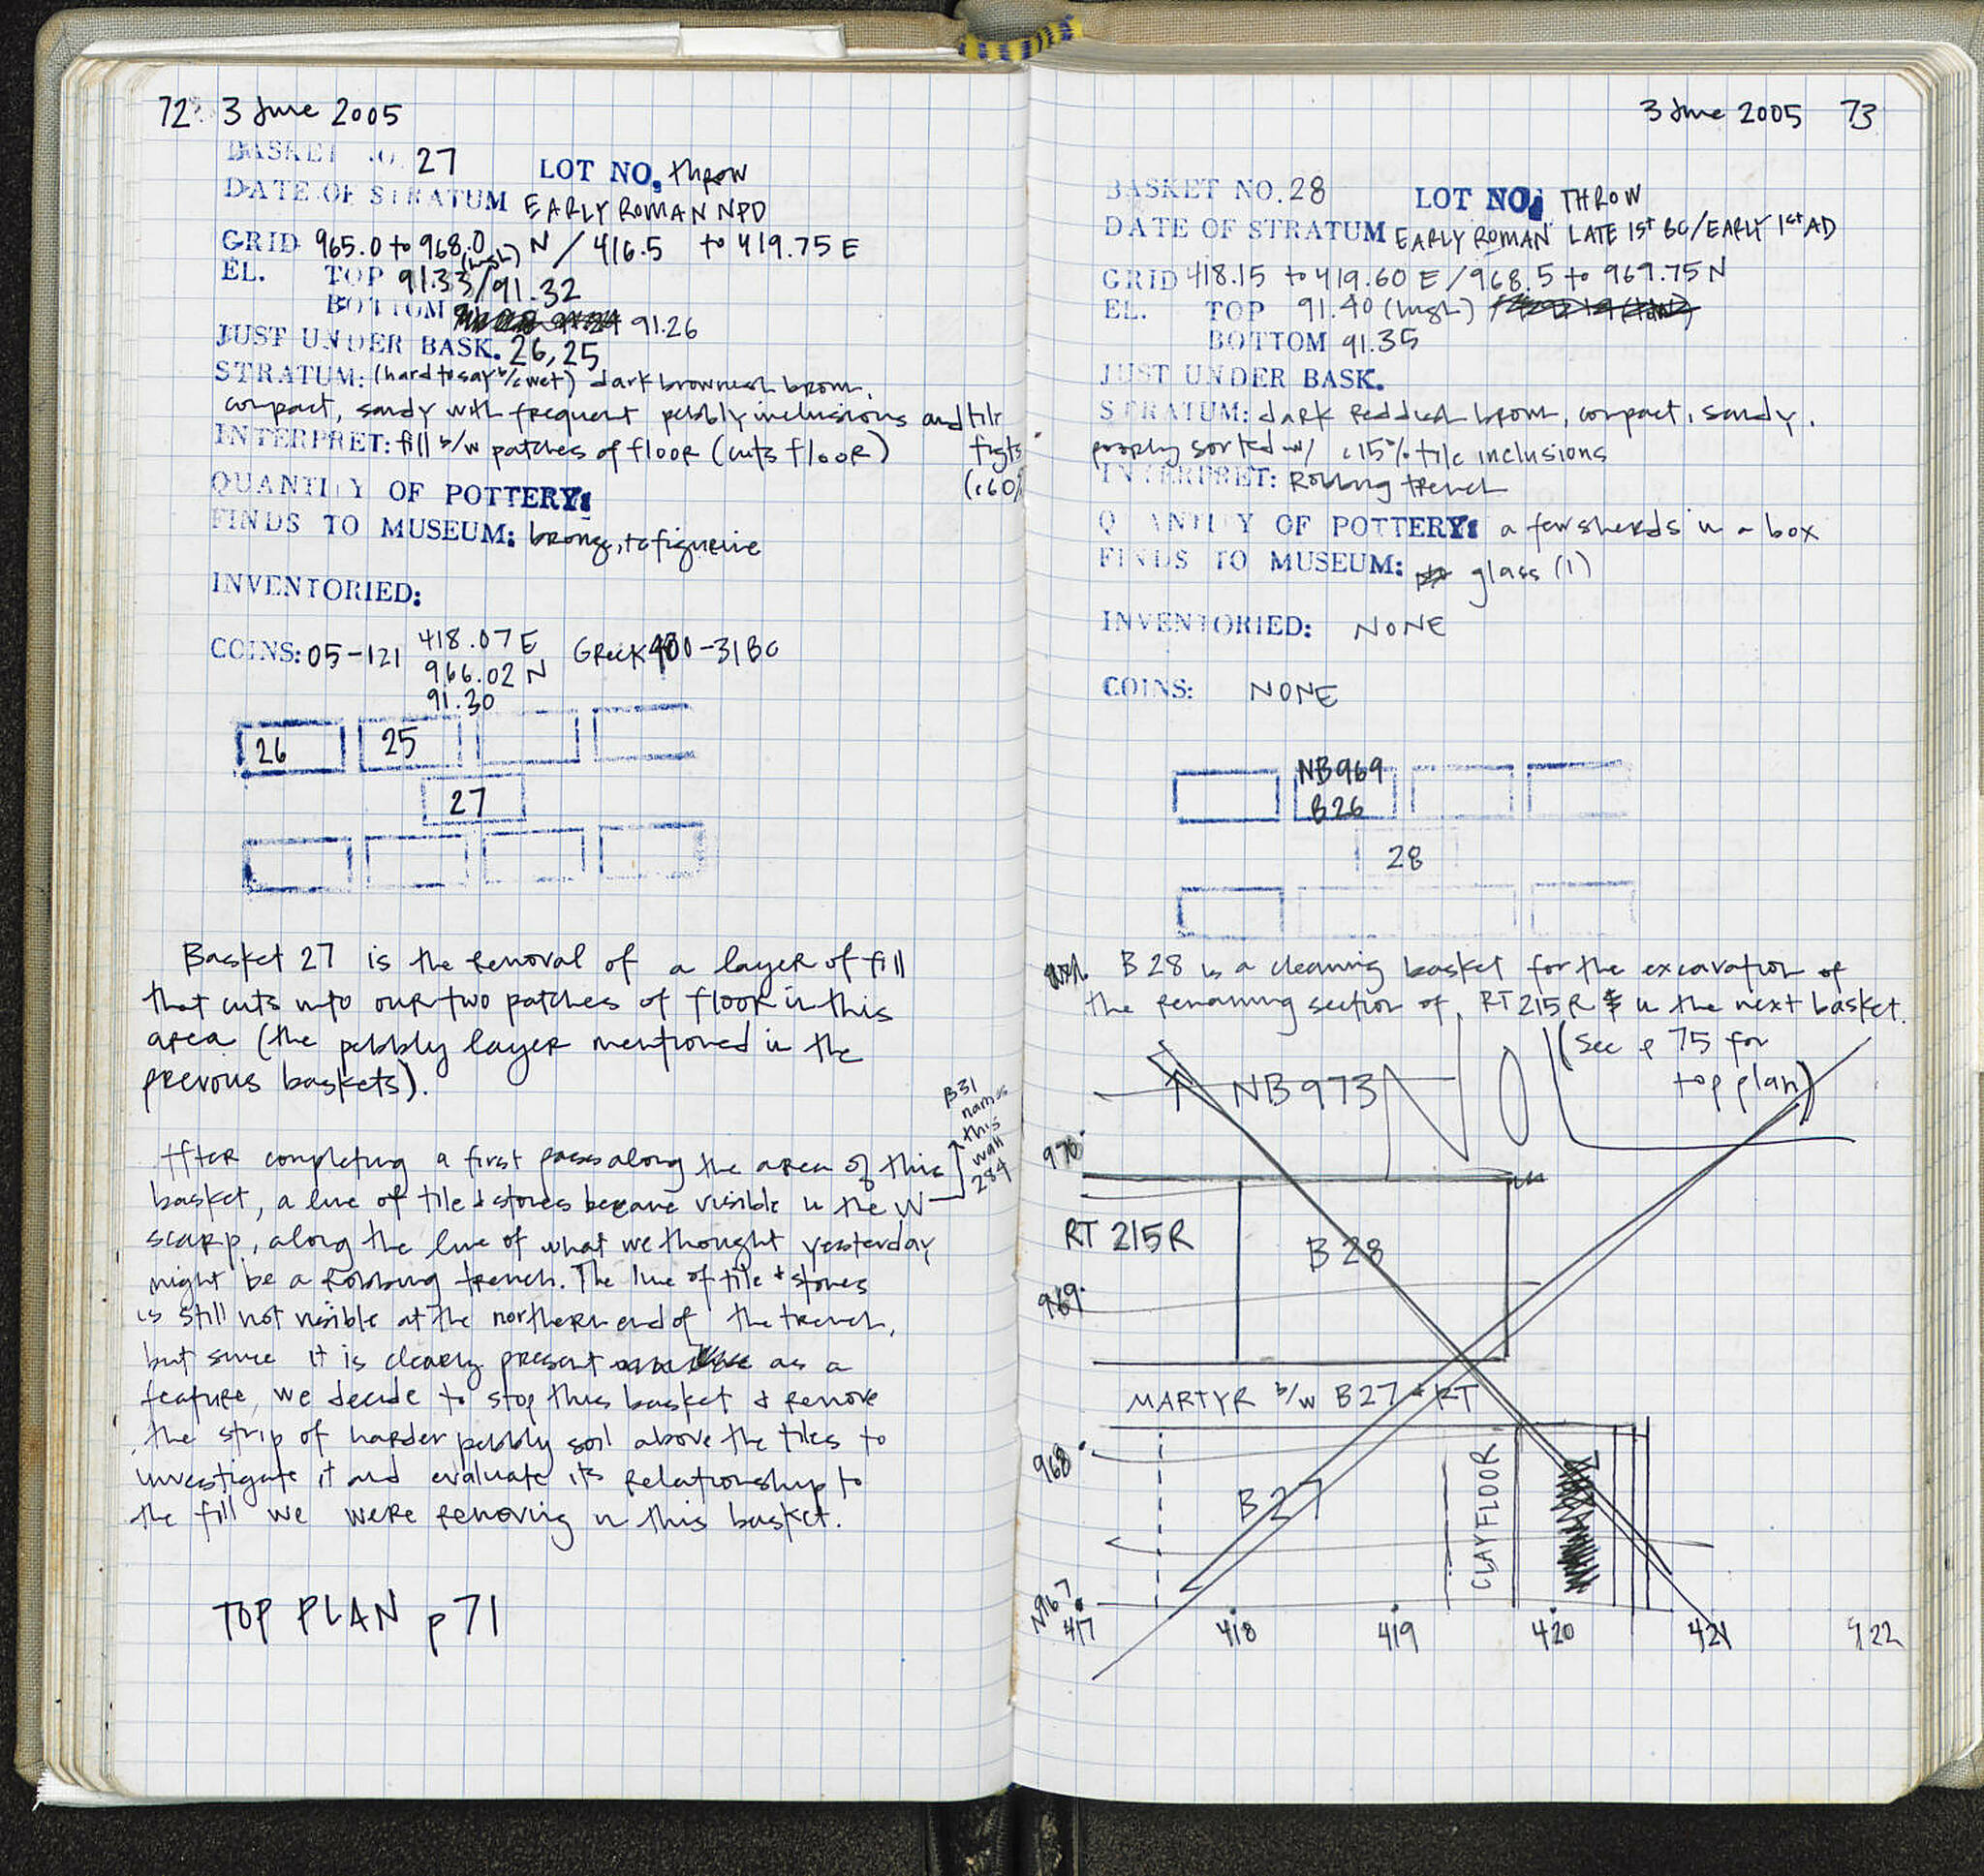 72 3 June 2005
BASKET NO. 27 LOT NO. throw
DATE OF STRATUM EARLY ROMAN NPD
GRID 965.0 to 968.0 N / 416.5 to 419.75 E
EL. TOP 91.33 (high) / 91.32
BOTTOM 91.26
JUST UNDER BASK. 26, 25
STRATUM: (hard to say b/c wet) dark brownish brown,
compact, sandy with frequent pebbly inclusions and tile
INTERPRET: fill b/w patches of floor (cuts floor) frgts
QUANTITY OF POTTERY: (c60%
FINDS TO MUSEUM: bronze, tc figurine
INVENTORIED:
COINS: 05-121 418.07 E Greek 400-31 BC
966.02 N
91.30
26 25
27
Basket 27 is the removal of a layer of fill
that cuts into our two patches of floor in this
area (the pebbly layer mentioned in the
previous baskets).
After completing a first pass along the area of this
basket, a line of tile & stones became visible in the W
scarp, along the line of what we thought yesterday
might be a Robbing trench. The line of tile & stones
is still not visible at the northern end of the trench,
but since it is clearly present as a
feature, we decide to stop this basket & remove
the strip of harder pebbly soil above the tiles to
investigate it and evaluate its relationship to
the fill we were removing in this basket.
B31
names
this
wall
284
TOP PLAN p 71
3 June 2005 73
BASKET NO. 28 LOT NO. THROW
DATE OF STRATUM EARLY ROMAN LATE 1st BC/EARLY 1st AD
GRID 418.15 to 419.60 E / 968.5 to 969.75 N
EL. TOP 91.40 (high)
BOTTOM 91.35
JUST UNDER BASK.
STRATUM: dark reddish brown, compact, sandy,
poorly sorted w/ c15% tile inclusions
INTERPRET: Robbing trench
QUANTITY OF POTTERY: a few sherds in a box
FINDS TO MUSEUM: glass (1)
INVENTORIED: NONE
COINS: NONE
NB969
B26
28
B28 is a cleaning basket for the excavation of
the remaining section of RT 215R in the next basket.
(See p 75 for
top plan)
NB 973 NO!
970
RT 215R B 28
969
MARTYR b/w B27 & RT
968
B 27 CLAY FLOOR
N967
417 418 419 420 421 422